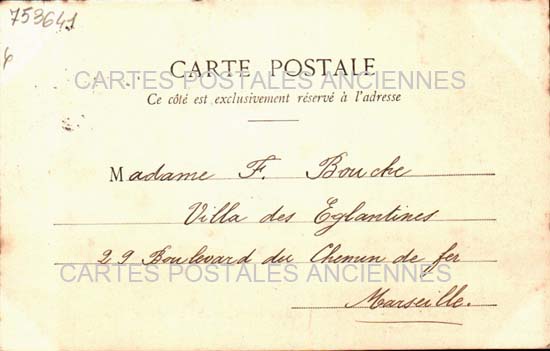 753641
CARTE POSTALE
CARTES POSTALES ANCIENNES
Ce côté est exclusivement réservé à l'adresse
Madame F. Bouche
Villa des Eglantines
29 Boulevard du Chemin de fer
CARTES POSTALES ANCIENNES
Marseille.